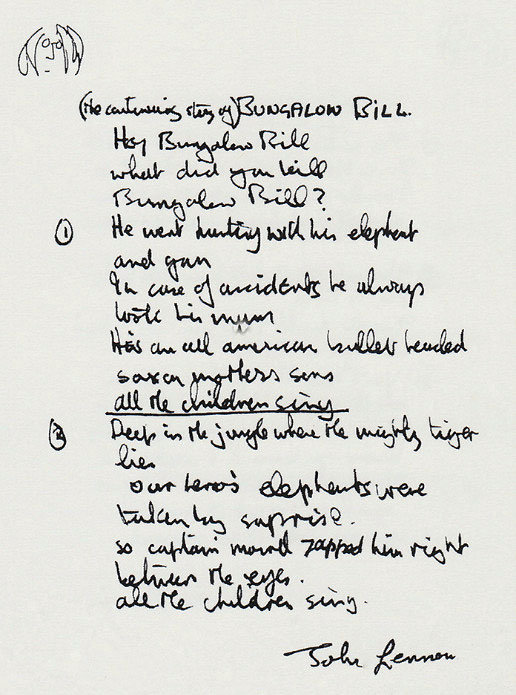 (The continuing story of) BUNGALOW BILL.
Hey Bungalow Bill
what did you kill
Bungalow Bill?
① He went hunting with his elephant
and gun
In case of accidents he always
took his mum
He's an all american bullet headed
saxon mothers sons
all the children sing
② Deep in the jungle where the mighty tiger
lies
our hero's elephants were
taken by suprise.
so captain marvel zapped him right
between the eyes.
all the children sing.
John Lennon